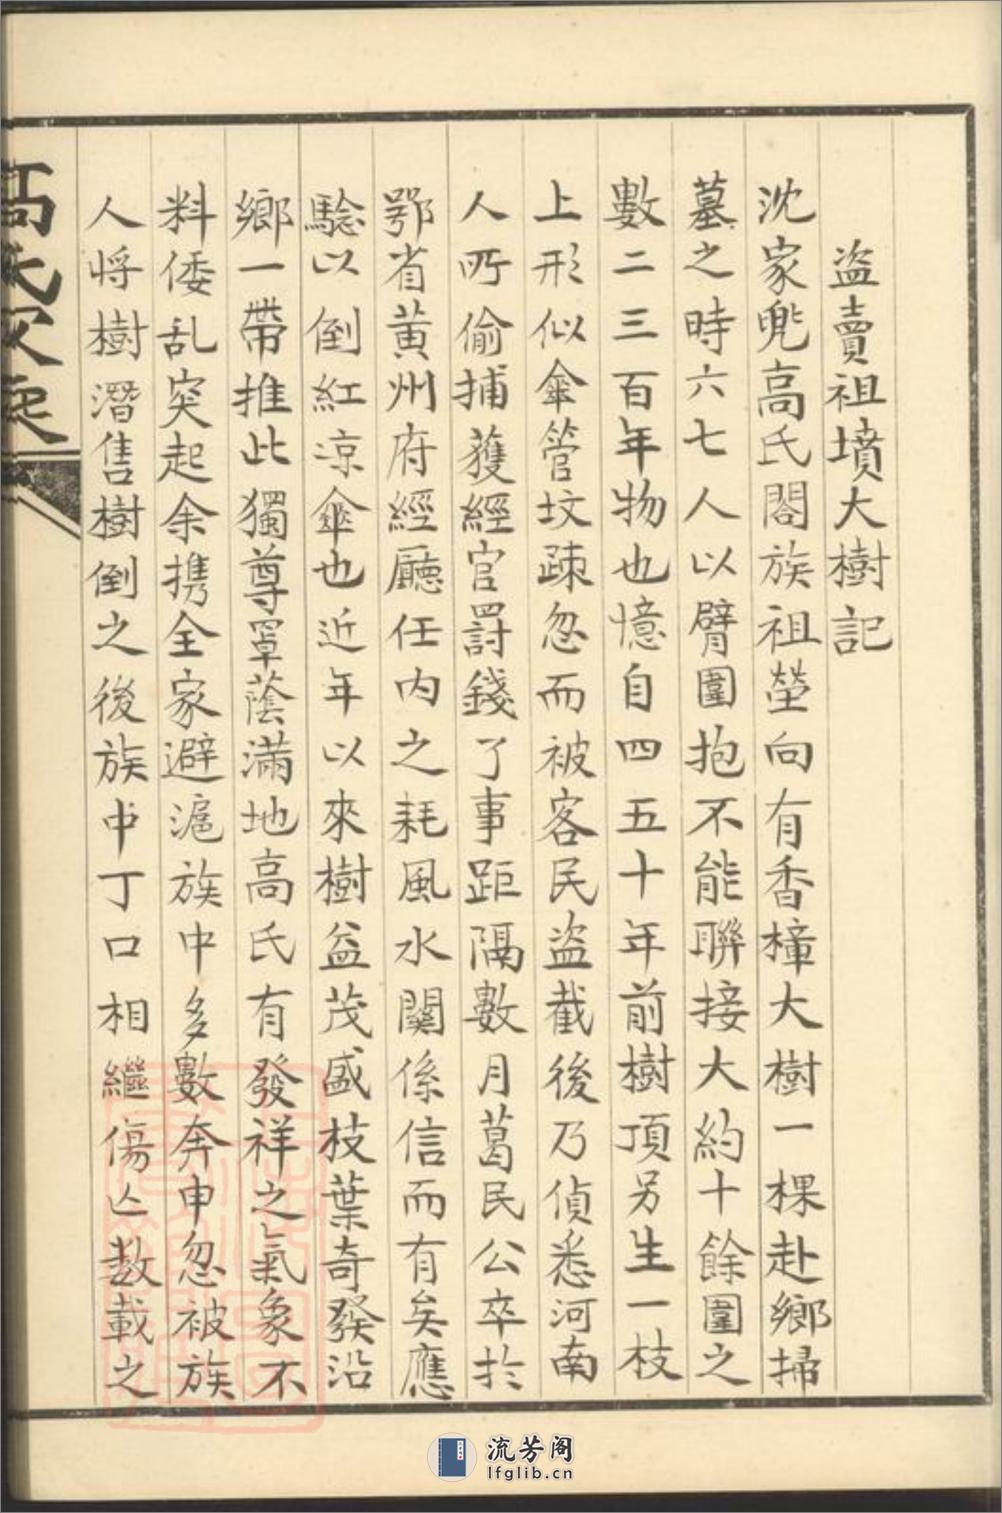 盜賣祖墳大樹記
沈家兜高氏閤族祖塋向有香樟大樹一棵赴鄉掃
墓之時六七人以臂圍抱不能聯接大約十餘圍之
數二三百年物也憶自四五十年前樹頂另生一枝
上形似傘管坟疎忽而被客民盜截後乃偵悉河南
人所偷捕獲經官罰錢了事距隔數月葛民公卒於
鄂省黃州府經廳任内之耗風水關係信而有矣應
驗以倒紅凉傘也近年以來樹益茂盛枝葉奇發沿
鄉一帶推此獨尊罩蔭滿地高氏有發祥之氣象不
料倭乱突起余携全家避滬族中多數奔申忽被族
人將樹潛售樹倒之後族中丁口相繼傷亡数載之
高氏家
流芳阁
lfglib.cn